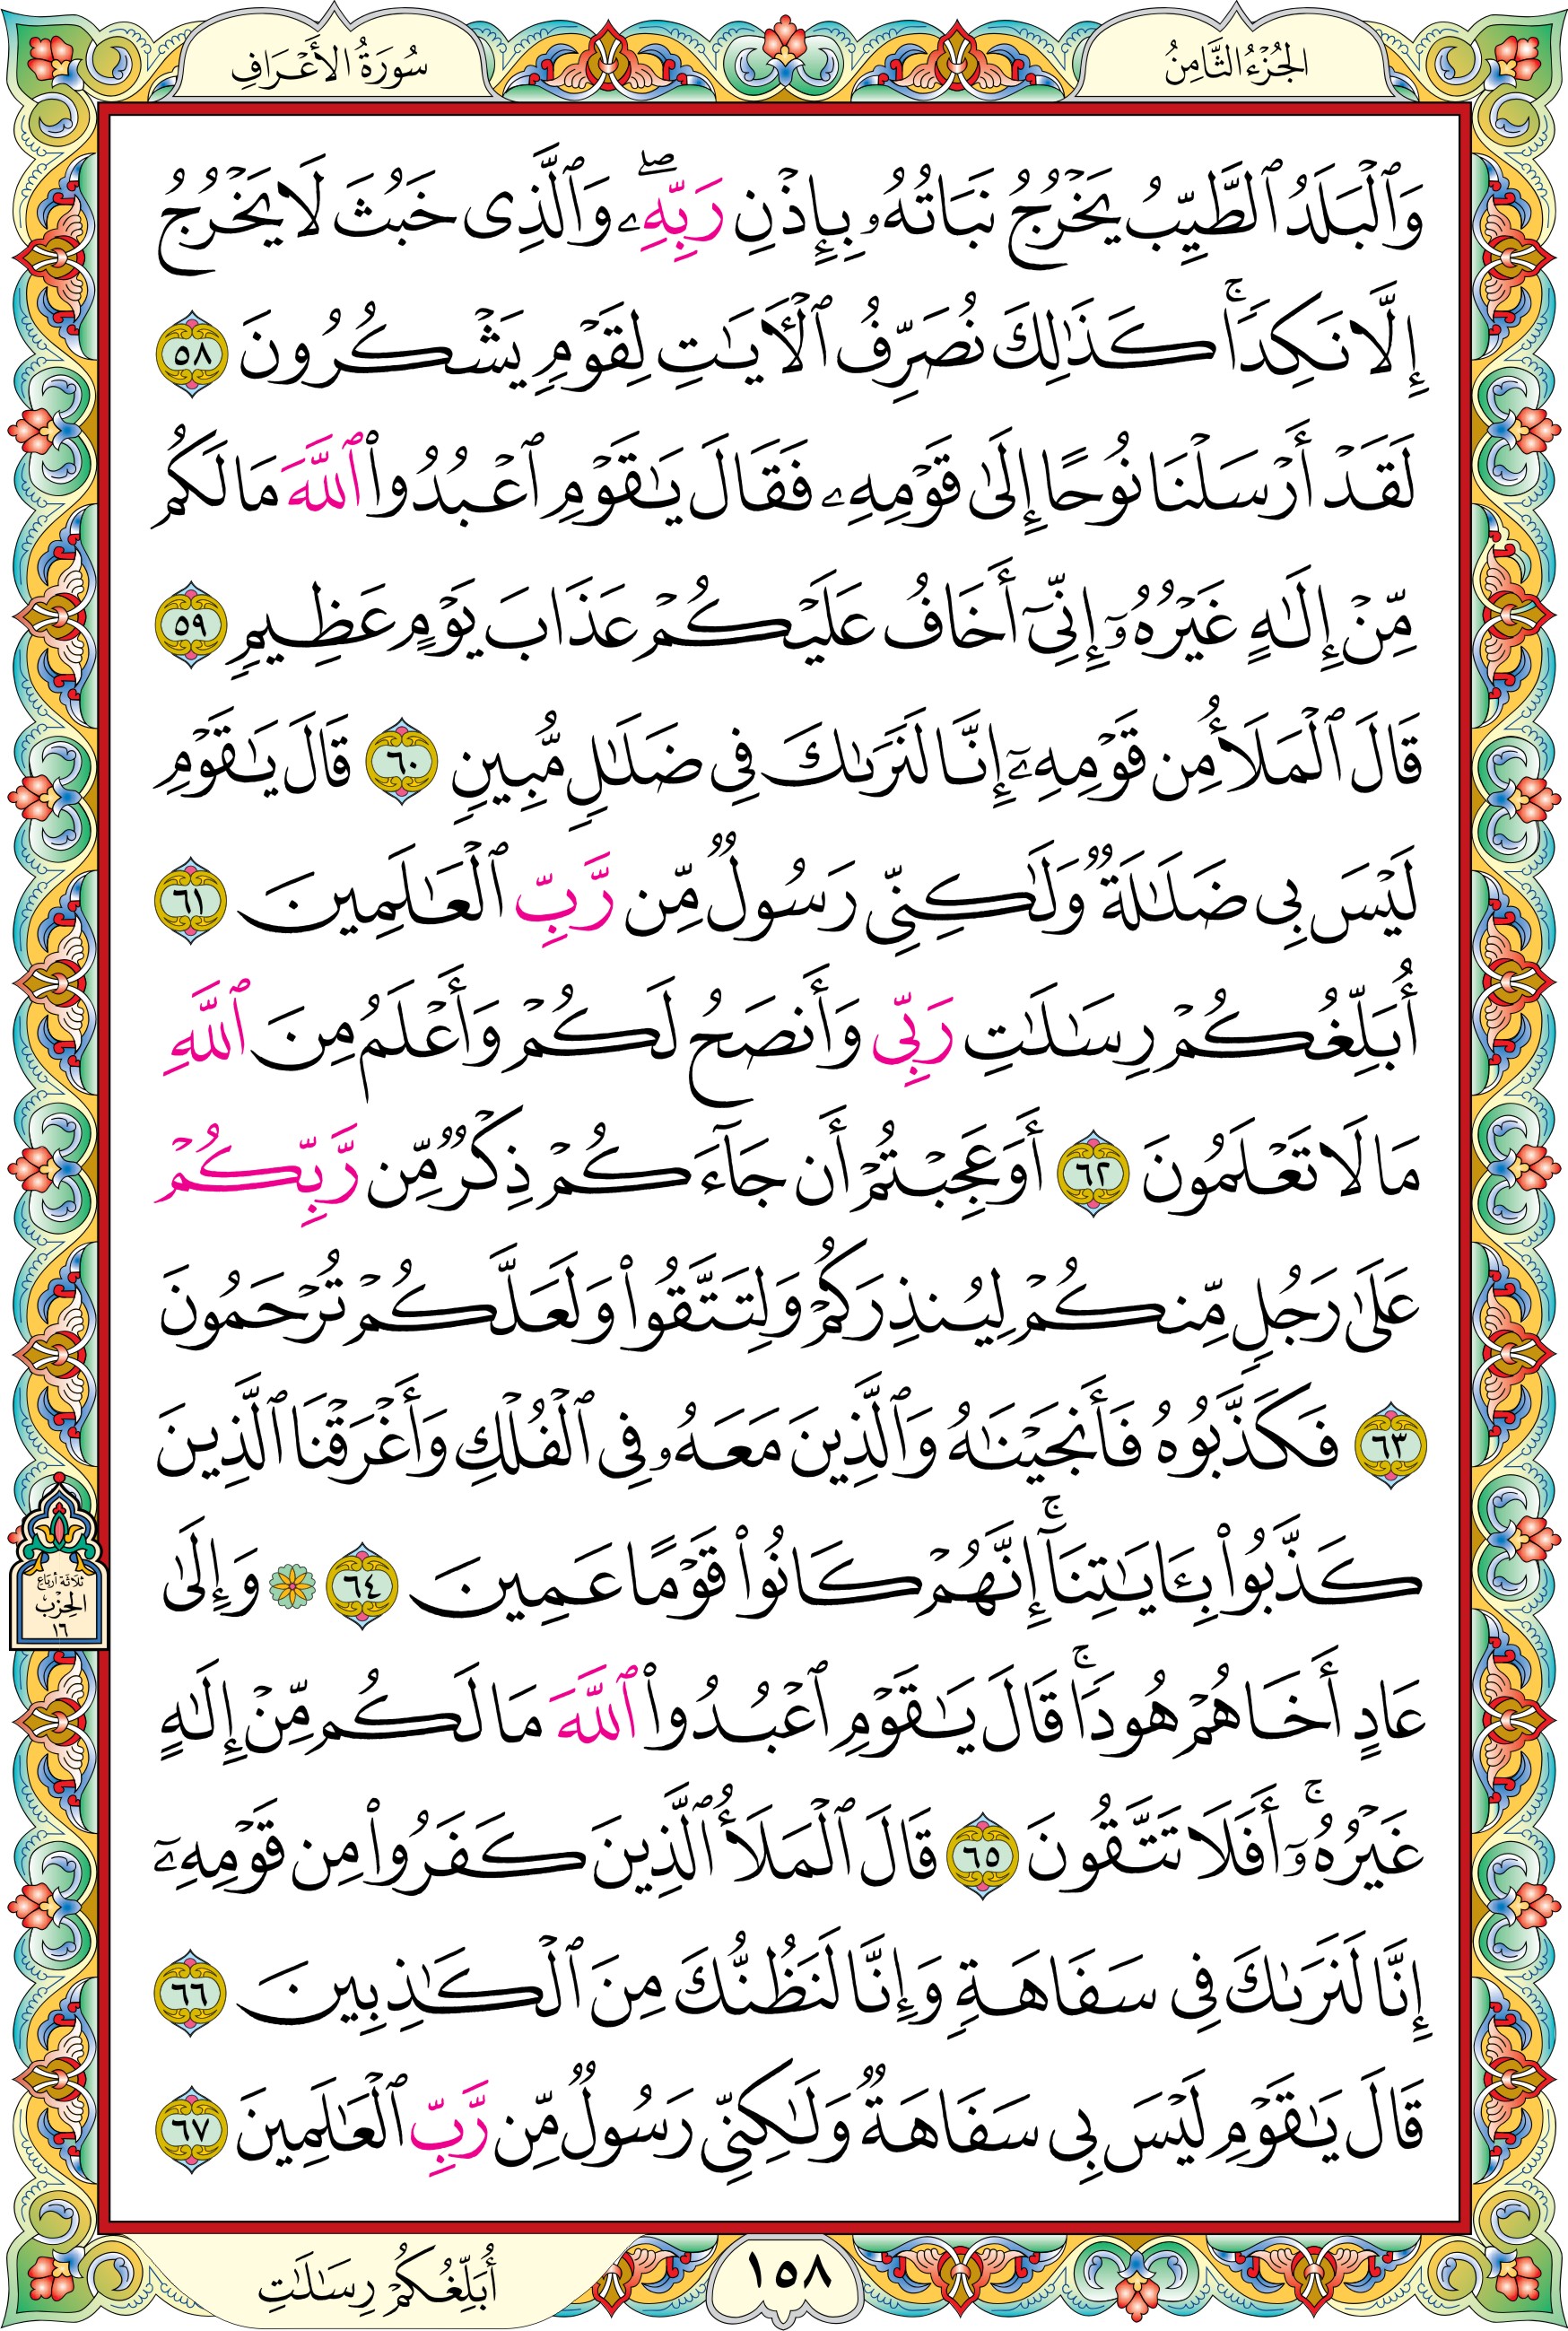 الجُزْءُ الثَّامِنُ
سُورَةُ الأَعْرَافِ
وَٱلْبَلَدُ ٱلطَّيِّبُ يَخْرُجُ نَبَاتُهُۥ بِإِذْنِ رَبِّهِۦۖ وَٱلَّذِى خَبُثَ لَا يَخْرُجُ
إِلَّا نَكِدًاۚ كَذَٰلِكَ نُصَرِّفُ ٱلْـَٔايَـٰتِ لِقَوْمٍ يَشْكُرُونَ ٥٨
لَقَدْ أَرْسَلْنَا نُوحًا إِلَىٰ قَوْمِهِۦ فَقَالَ يَـٰقَوْمِ ٱعْبُدُوا۟ ٱللَّهَ مَا لَكُم
مِّنْ إِلَـٰهٍ غَيْرُهُۥٓ إِنِّىٓ أَخَافُ عَلَيْكُمْ عَذَابَ يَوْمٍ عَظِيمٍ ٥٩
قَالَ ٱلْمَلَأُ مِن قَوْمِهِۦٓ إِنَّا لَنَرَىٰكَ فِى ضَلَـٰلٍ مُّبِينٍ ٦٠ قَالَ يَـٰقَوْمِ
لَيْسَ بِى ضَلَـٰلَةٌ وَلَـٰكِنِّى رَسُولٌ مِّن رَّبِّ ٱلْعَـٰلَمِينَ ٦١
أُبَلِّغُكُمْ رِسَـٰلَـٰتِ رَبِّى وَأَنصَحُ لَكُمْ وَأَعْلَمُ مِنَ ٱللَّهِ
مَا لَا تَعْلَمُونَ ٦٢ أَوَعَجِبْتُمْ أَن جَآءَكُمْ ذِكْرٌ مِّن رَّبِّكُمْ
عَلَىٰ رَجُلٍ مِّنكُمْ لِيُنذِرَكُمْ وَلِتَتَّقُوا۟ وَلَعَلَّكُمْ تُرْحَمُونَ
٦٣ فَكَذَّبُوهُ فَأَنجَيْنَـٰهُ وَٱلَّذِينَ مَعَهُۥ فِى ٱلْفُلْكِ وَأَغْرَقْنَا ٱلَّذِينَ
كَذَّبُوا۟ بِـَٔايَـٰتِنَآۚ إِنَّهُمْ كَانُوا۟ قَوْمًا عَمِينَ ٦٤ ۞ وَإِلَىٰ
عَادٍ أَخَاهُمْ هُودًاۚ قَالَ يَـٰقَوْمِ ٱعْبُدُوا۟ ٱللَّهَ مَا لَكُم مِّنْ إِلَـٰهٍ
غَيْرُهُۥٓۚ أَفَلَا تَتَّقُونَ ٦٥ قَالَ ٱلْمَلَأُ ٱلَّذِينَ كَفَرُوا۟ مِن قَوْمِهِۦٓ
إِنَّا لَنَرَىٰكَ فِى سَفَاهَةٍ وَإِنَّا لَنَظُنُّكَ مِنَ ٱلْكَـٰذِبِينَ ٦٦
قَالَ يَـٰقَوْمِ لَيْسَ بِى سَفَاهَةٌ وَلَـٰكِنِّى رَسُولٌ مِّن رَّبِّ ٱلْعَـٰلَمِينَ ٦٧
ثلاثة أرباع
الحِزْب
١٦
١٥٨
أُبَلِّغُكُمْ رِسَـٰلَـٰتِ